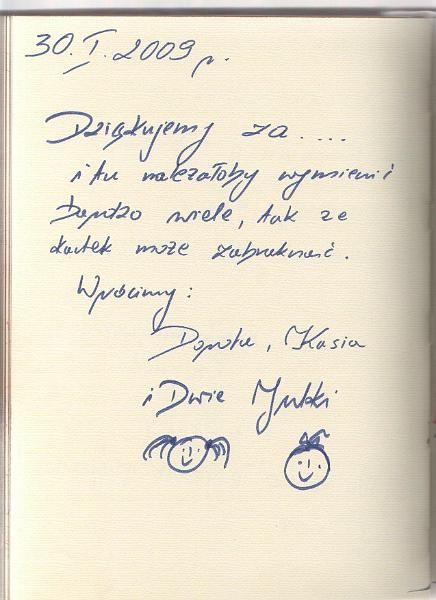 30.I.2009 r.
Dziękujemy za ....
i tu należałoby wymienić
bardzo wiele, tak że
kartek może zabraknąć.
Wrócimy:
Dorota, Kasia
i Dwie